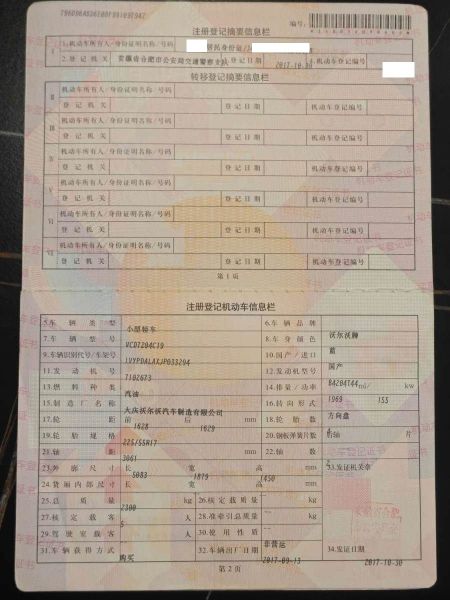 T96D96AS26E80F09109T94Z
编号:
注册登记摘要信息栏
I 1.机动车所有人/身份证明名称/号码 居民身份证/
2.登记机关 安徽省合肥市公安局交通警察支队 3.登记日期 2017-10-30 4.机动车登记编号
转移登记摘要信息栏
II 机动车所有人/身份证明名称/号码
登记机关 登记日期 机动车登记编号
III 机动车所有人/身份证明名称/号码
登记机关 登记日期 机动车登记编号
IV 机动车所有人/身份证明名称/号码
登记机关 登记日期 机动车登记编号
V 机动车所有人/身份证明名称/号码
登记机关 登记日期 机动车登记编号
VI 机动车所有人/身份证明名称/号码
登记机关 登记日期 机动车登记编号
VII 机动车所有人/身份证明名称/号码
登记机关 登记日期 机动车登记编号
第1页
注册登记机动车信息栏
5.车辆类型 小型轿车 6.车辆品牌 沃尔沃牌
7.车辆型号 VCD7204C19 8.车身颜色 蓝
9.车辆识别代号/车架号 LVYPDALAXJP033294 10.国产/进口 国产
11.发动机号 7102673 12.发动机型号 B4204T44
13.燃料种类 汽油 14.排量/功率 1969 ml/ 155 kw
15.制造厂名称 大庆沃尔沃汽车制造有限公司 16.转向形式 方向盘
17.轮距 前 1628 后 1629 mm 18.轮胎数 4
19.轮胎规格 225/55R17 20.钢板弹簧片数 后轴 片
21.轴距 3061 mm 22.轴数 2
23.外廓尺寸 长 5083 宽 1879 高 1450 mm 33.发证机关章
24.货厢内部尺寸 长 宽 高 mm
25.总质量 2300 kg 26.核定载质量 kg
27.核定载客 5 人 28.准牵引总质量 kg
29.驾驶室载客 人 30.使用性质 非营运
31.车辆获得方式 购买 32.车辆出厂日期 2017-09-13 34.发证日期 2017-10-30
第2页